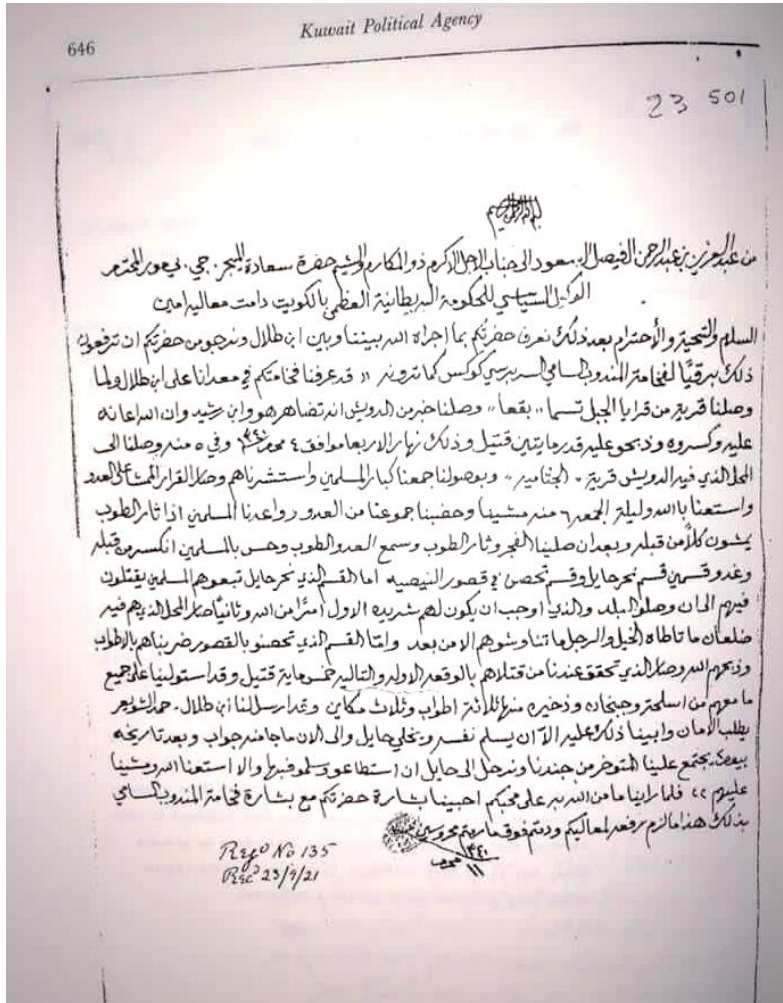 646
Kuwait Political Agency
23 501
بسم الله الرحمن الرحيم
من عبدالعزيز بن عبدالرحمن الفيصل السعود الى جناب الاجل الاكرم ذو المكارم والشيم حضرة سعادة الميجر . جي . سي مور المحترم
الوكيل السياسي للحكومة البريطانية العظمى بالكويت دامت معاليه امين
السلام والتحية والأحترام بعد ذلك نعرف حضرتكم بما اجراه الله بيننا وبين ابن طلال ونرجو من حضرتكم ان ترفعون
ذلك برقيًا لفخامة المندوب السامي السر برسي كوكس كما ترونه " قد عرفنا فخامتكم في معدانا على ابن طلال ولما
وصلنا قرية من قرايا الجبل تسما ،، بقعا ،، وصلنا خبر من الدويش انه تضاهر هو وابن رشيد وان الله اعانه
عليه وكسروه وذبحو عليه قدر مايتين قتيل وذلك نهار الاربعا موافق ٤ محرم ١٣٤٠ وفي ٥ منه وصلنا الى
المحل الذي فيه الدويش قرية ،، الجثاميه ،، وبوصولنا جمعنا كبار المسلمين واستشرناهم وصار القرار الممشا على العدو
واستعنا باالله وليلة الجمعه ٦ منه مشينا وحضبنا جموعنا من العدو وواعدنا المسلمين اذا ثار الطوب
يمشون كلاً من قبله وبعد ان صلينا الفجر وثار الطوب وسمع العدو الطوب وحس بالمسلمين انكسر من قبله
وغدو قسمين قسم نحر حايل وقسم تحصن في قصور النيصيه اما القسم الذي نحر حايل تبعوهم المسلمين يقتلون
فيهم الى ان وصلوا البلد والذي اوجب ان يكون لهم شريده الاول امرًا من الله وثانيًا صار المحل الذي هم فيه
ضلعان ما تاطاه الخيل والرجل ما تناوشوهم الا من بعد وامّا القسم الذي تحصنو بالقصور ضربناهم بالاطواب
وذبحهم الله وصار الذي تحقق عندنا من قتلاهم بالوقعه الاوله والتاليه خمسماية قتيل وقد استولينا على جميع
ما معهم من اسلحة وجبخاده وذخيره منها ثلاثة اطواب وثلاث مكاين وقد ارسل لنا ابن طلال . حمد الشويعر
يطلب الأمان وابينا ذلك عليه الاّ ان يسلم نفسه ويخلي حايل والى الان ما جا منه جواب وبعد تاريخه
يجتمع علينا المتوخر من جندنا ونرحل الى حايل ان استطاعو وسلمو فبها والا استعنا الله ومشينا
عليهم ،، فلما راينا ما من الله به على محبكم احبينا بشارة حضرتكم مع بشارة فخامة المندوب السامي
بذلك هذا ما لزم رفعه لمعاليكم ودمتم فوق ما رمتم محروسين
١١ محرم ١٣٤٠
Regd No 135
Recd 23/9/21